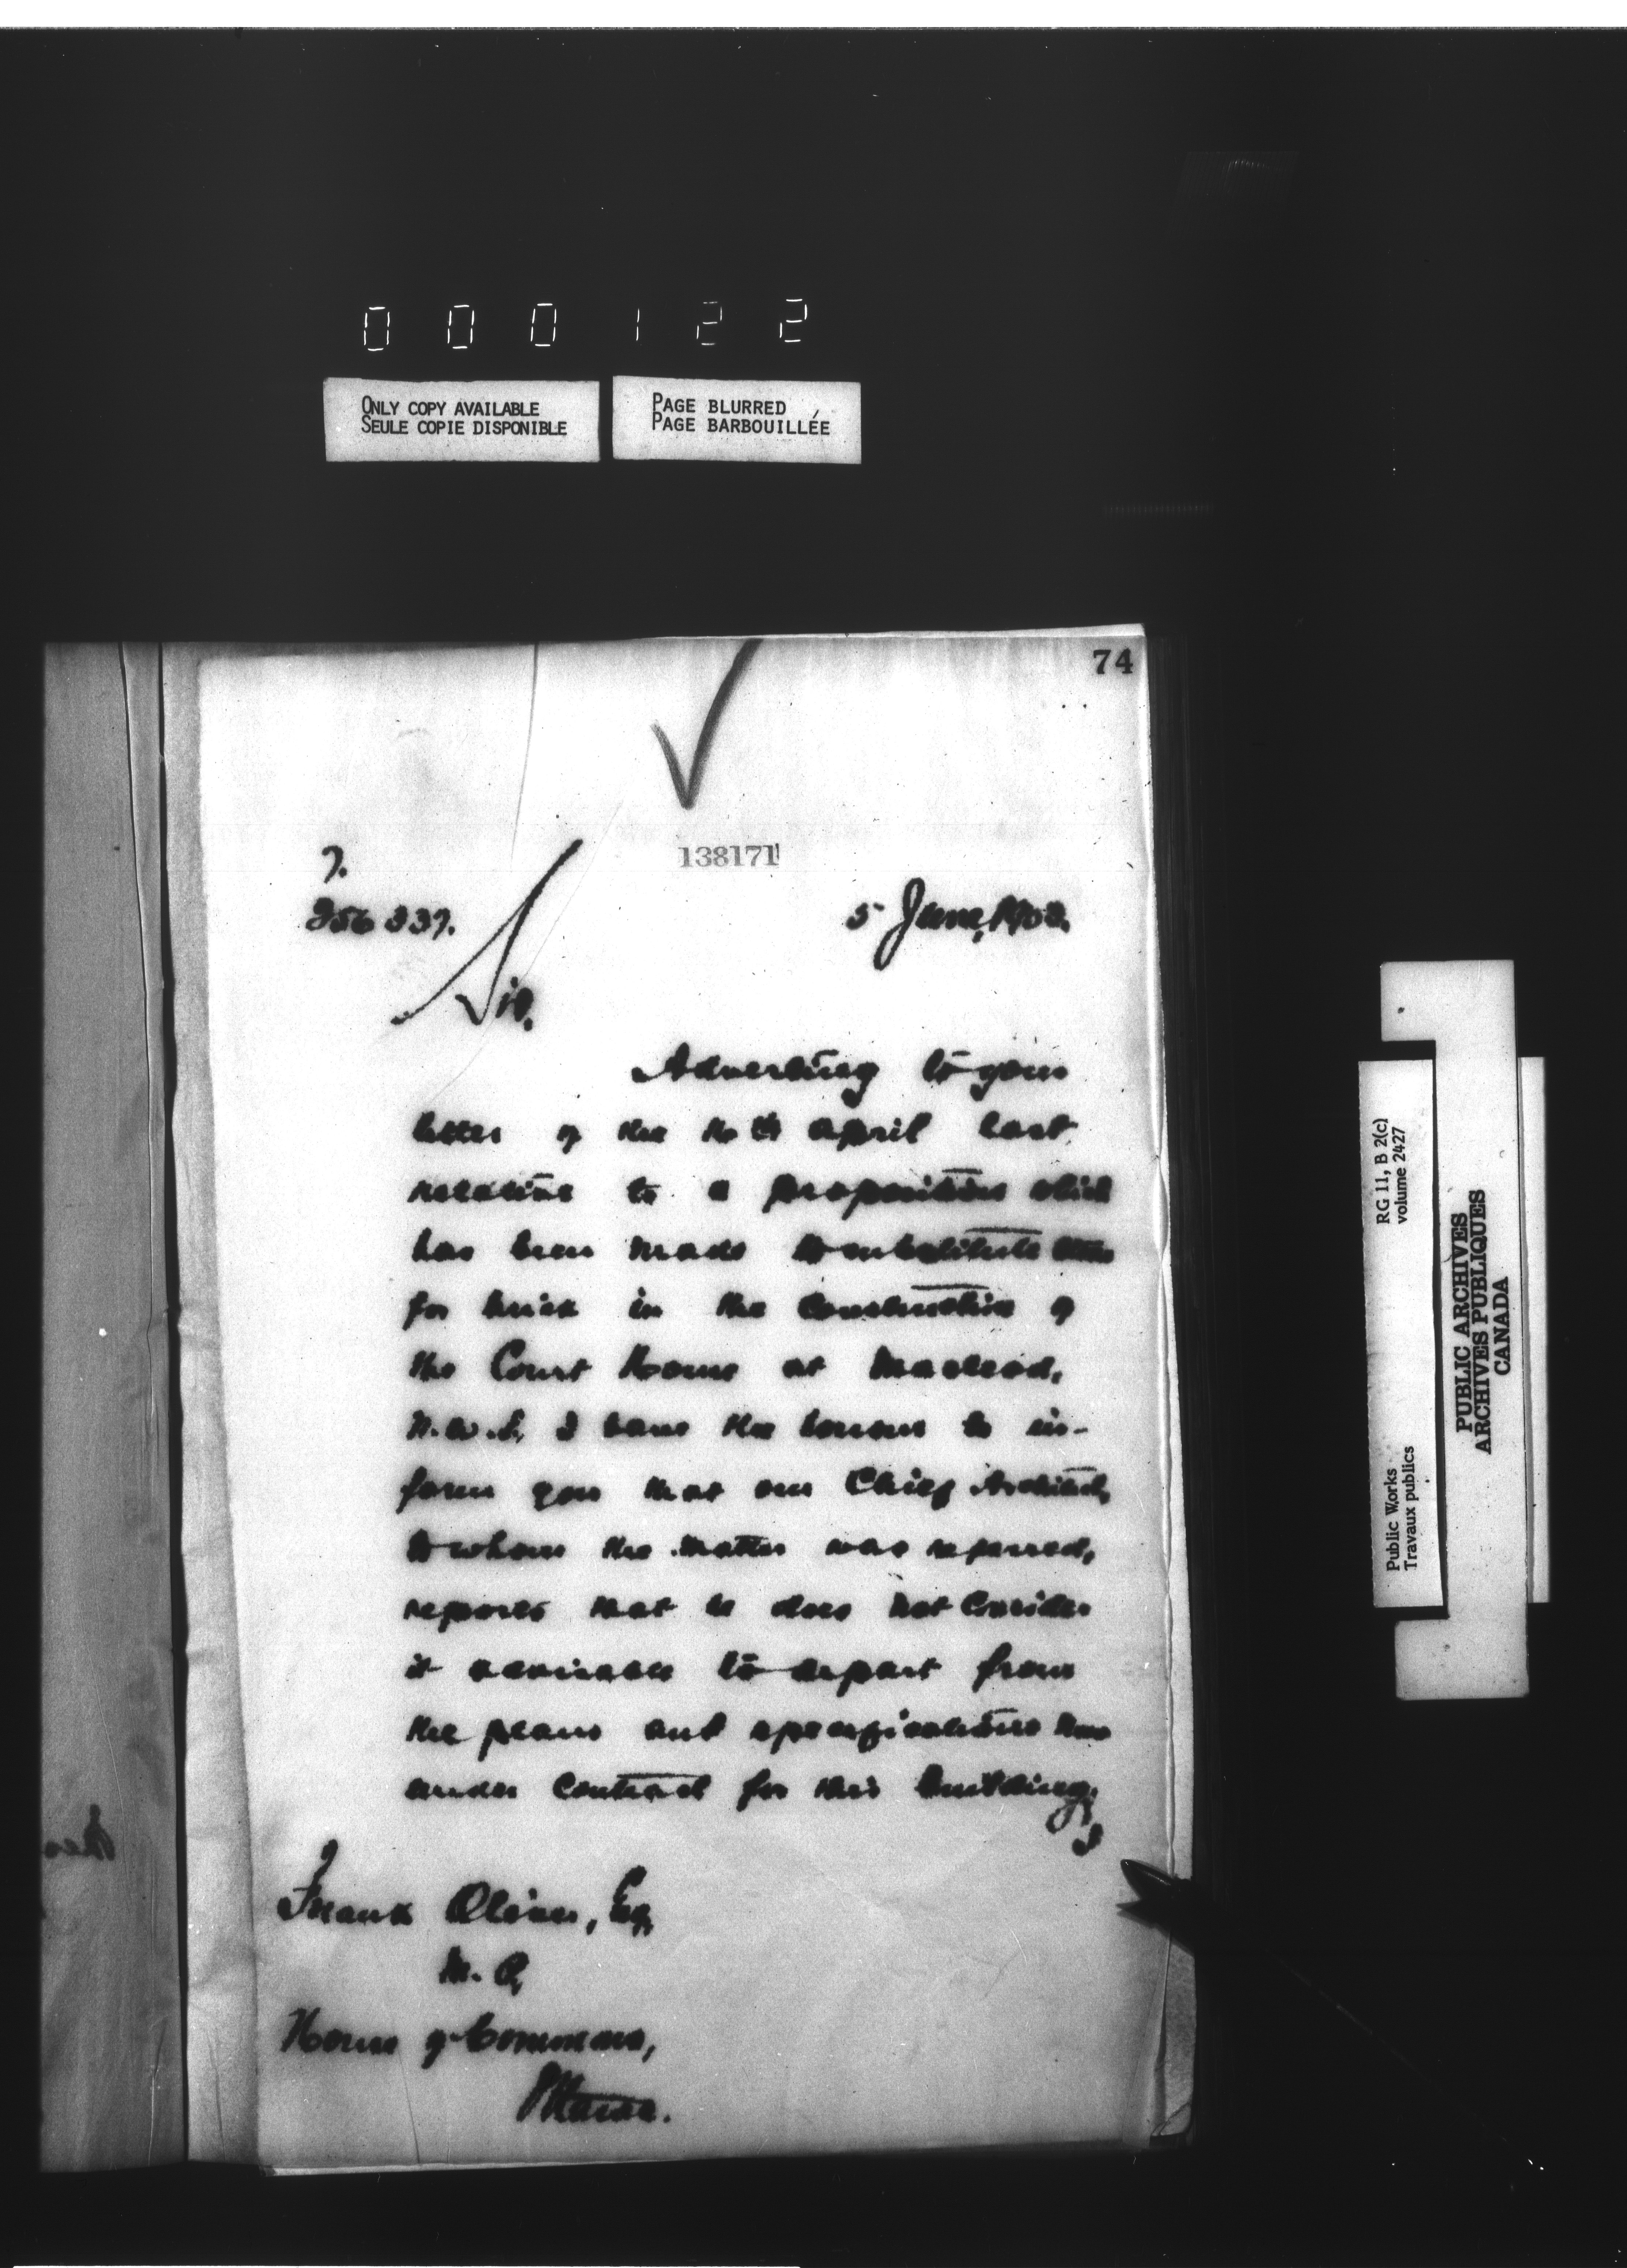 000122
ONLY COPY AVAILABLE
SEULE COPIE DISPONIBLE
PAGE BLURRED
PAGE BARBOUILLÉE
74
138171
7.
256 337.
5 June, 1903.
Sir,
Adverting to your
letter of the April last
relative to a proposition which
has been made to substitute
for brick in the construction of
the Court House at Macleod,
N.W.T., I have the honour to in-
form you that our Chief Architect,
to whom the matter was referred,
reports that he does not consider
it advisable to depart from
the plans and specifications now
under contract for this building.
I
Frank Oliver, Esq,
M.P,
House of Commons,
Ottawa.
RG 11, B 2(c)
volume 2427
Public Works
Travaux publics
PUBLIC ARCHIVES
ARCHIVES PUBLIQUES
CANADA